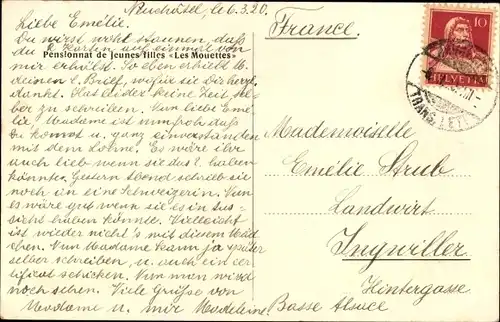 Neuchâtel, le 6.3.20.
Liebe Emélie.
Du wirst wohl staunen, daß
du 2 Karten auf einmal von
Pensionnat de Jeunes filles «Les Mouettes»
mir erhälst. So eben erhielt M.
deinen l. Brief, wofür sie Dir herzl.
dankt. Hat leider keine Zeit, sel-
ber zu schreiben. Nun liebe Emé-
lie, Madame ist um froh daß
du komst u. ganz einverstanden
mit dem Lohne. Es wäre ihr
auch lieb wenn sie das 2. haben
könnte. Gestern Abend schrieb sie
noch an eine Schweizerin. Nun
es wäre gut wenn sie es in Aus-
sicht haben könnte. Vielleicht
ist wieder nicht's mit diesem Mäd
chen. Nun Madame kann ja später
selber schreiben, u. auch ein cer-
tificat schicken. Nun man wird
noch sehen. Viele Grüße von
Madame u. mir Madeleine.
France.
HELVETIA
10
TRANS. LETT.
Mademoiselle
Emélie Strub
Landwirt
Ingwiller
Hintergasse
Basse Alsace